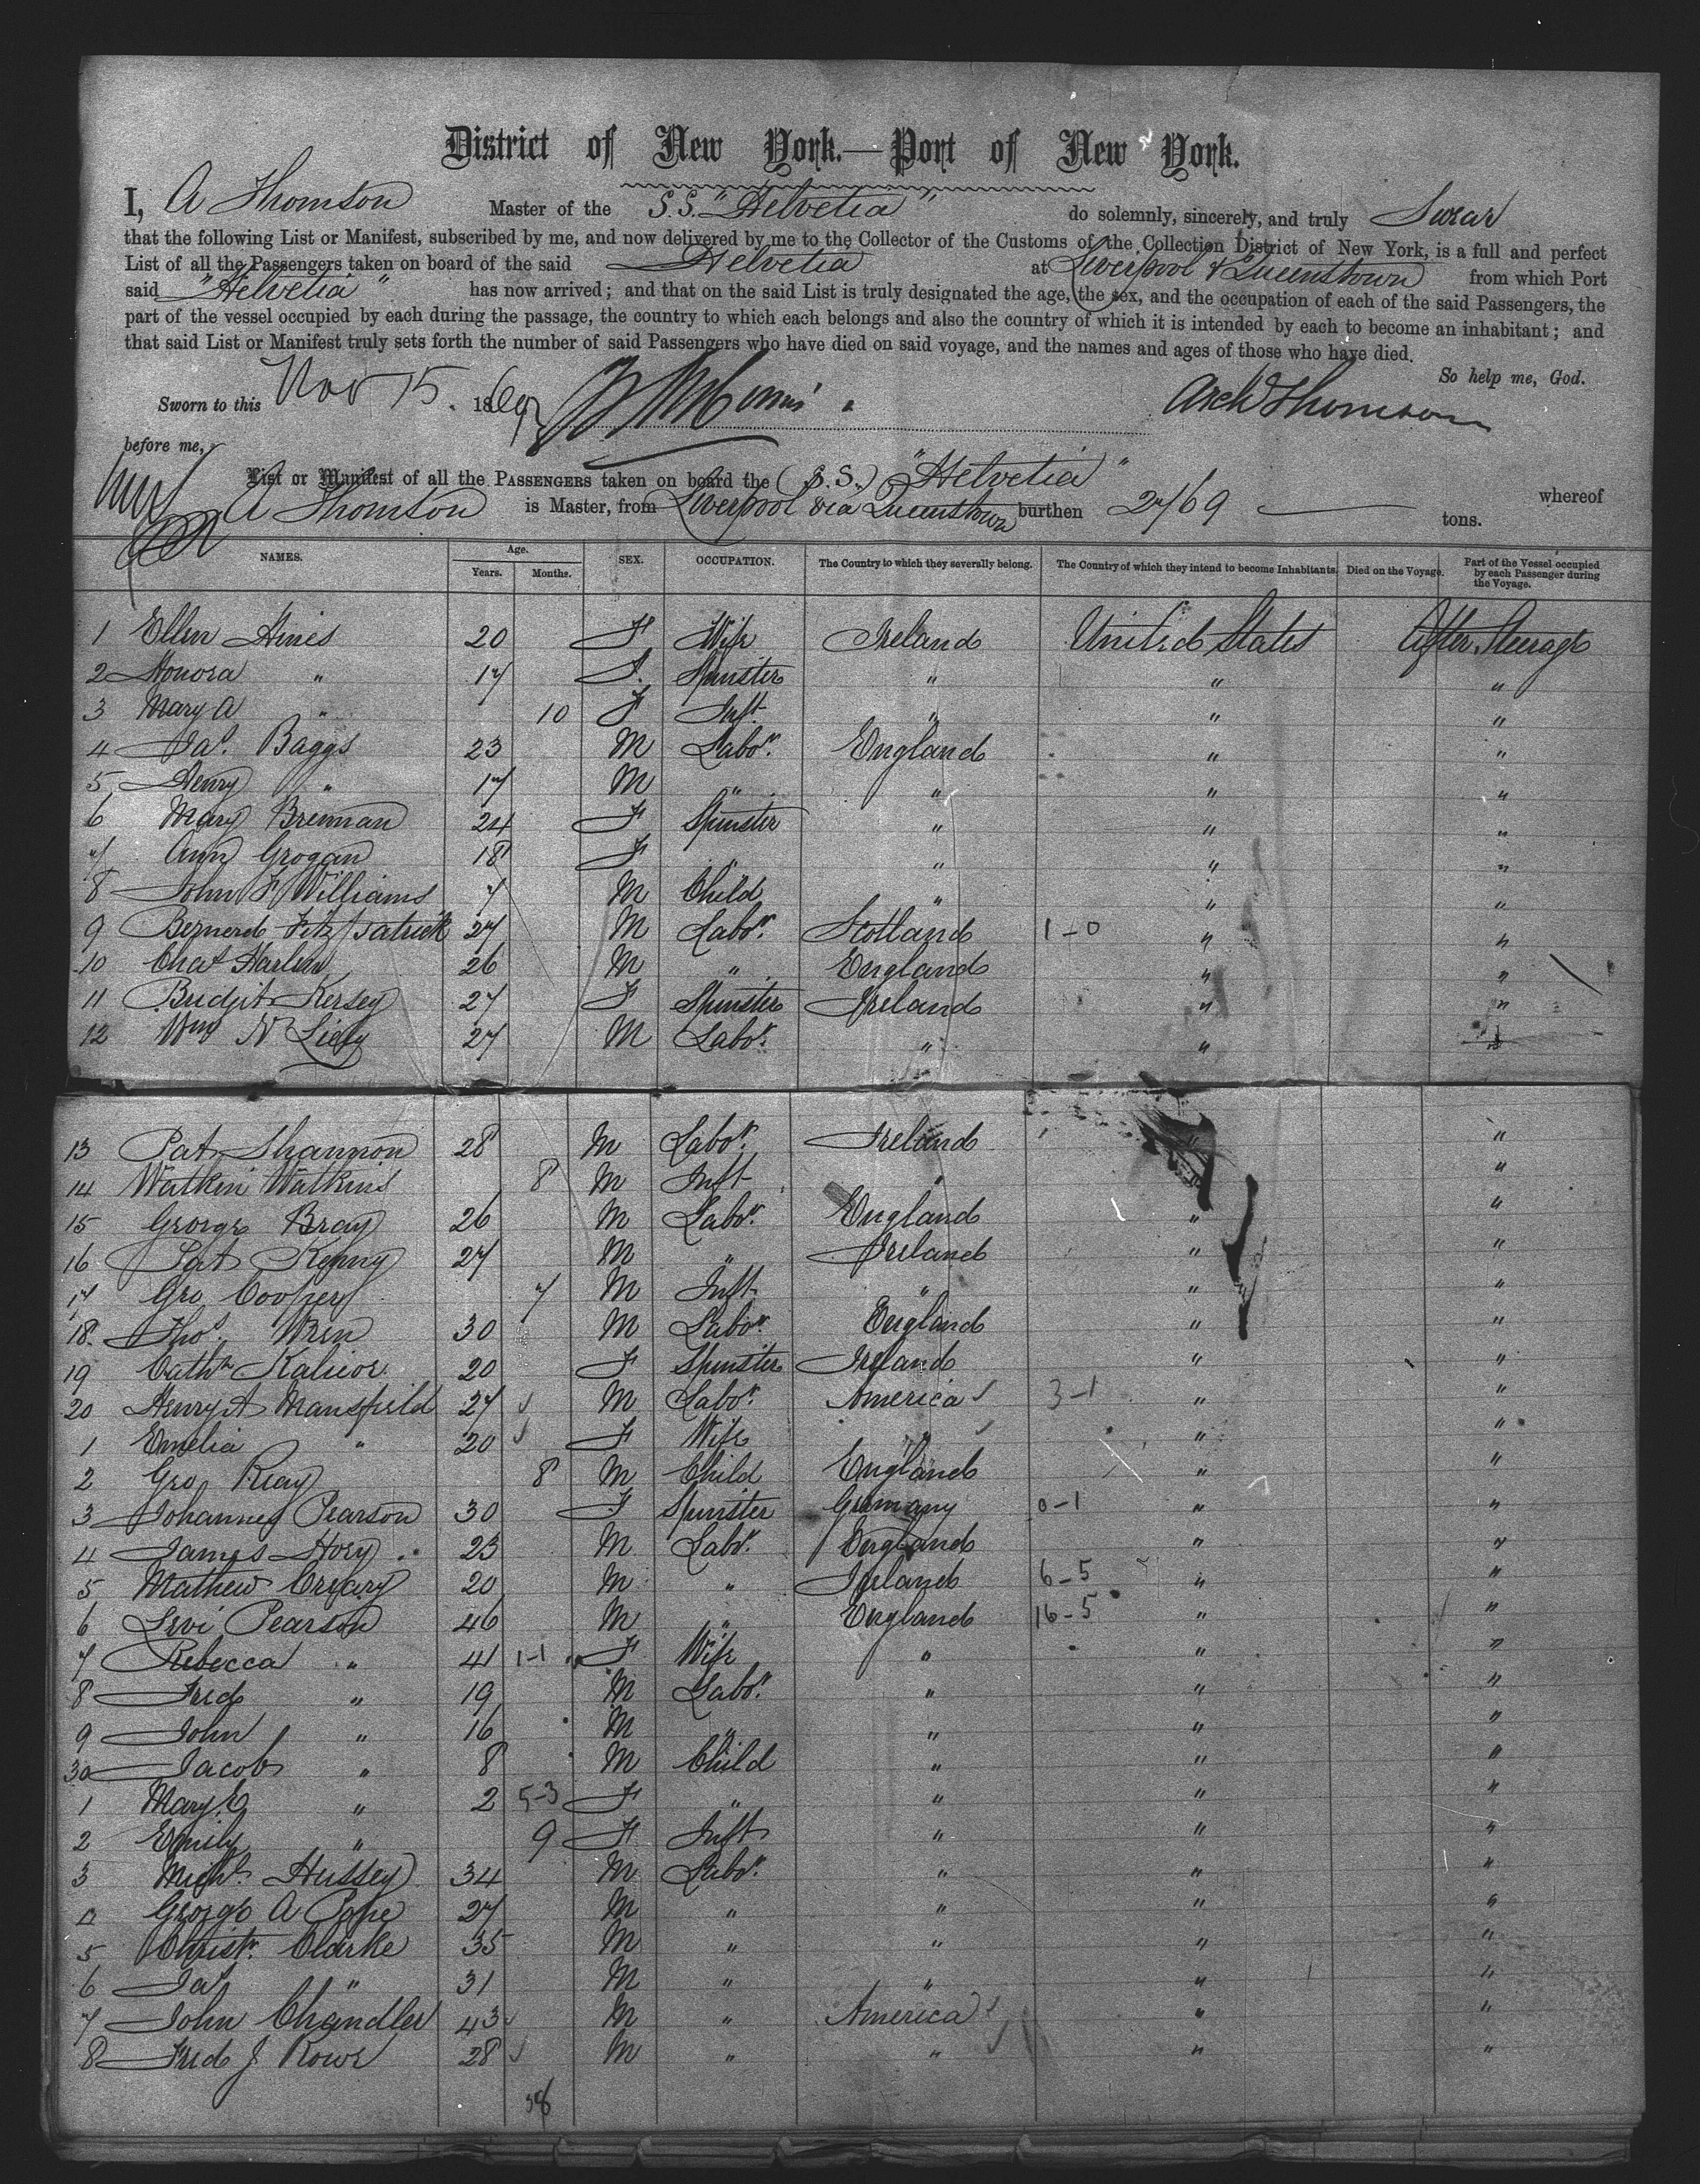 District of New York.—Port of New York.
I, A Thomson Master of the S.S. "Helvetia" do solemnly, sincerely, and truly Swear
that the following List or Manifest, subscribed by me, and now delivered by me to the Collector of the Customs of the Collection District of New York, is a full and perfect
List of all the Passengers taken on board of the said Helvetia at Liverpool & Queenstown from which Port
said "Helvetia" has now arrived; and that on the said List is truly designated the age, the sex, and the occupation of each of the said Passengers, the
part of the vessel occupied by each during the passage, the country to which each belongs and also the country of which it is intended by each to become an inhabitant; and
that said List or Manifest truly sets forth the number of said Passengers who have died on said voyage, and the names and ages of those who have died.
So help me, God.
Sworn to this Nov 15. 1869 Archd Thomson
before me,
List or Manifest of all the PASSENGERS taken on board the (S.S.) "Helvetia" whereof
A Thomson is Master, from Liverpool via Queenstown burthen 2769 tons.
NAMES. Age. Years. Months. SEX. OCCUPATION. The Country to which they severally belong. The Country of which they intend to become Inhabitants. Died on the Voyage. Part of the Vessel occupied by each Passenger during the Voyage.
1 Ellen Hines 20 F Wife Ireland United States After Steerage
2 Honora " 17 F. Spinster " " "
3 Mary A " 10 F Inft " " "
4 Jas. Baggs 23 M Labor. England " "
5 Henry " 17 M " " " "
6 Mary Brennan 24 F Spinster " " "
7 Ann Grogan 18 F " " " "
8 John F Williams 7 M Child " " "
9 Bernerd Fitzpatrick 27 M Labor. Scotland 1-0 " "
10 Chas Harlin 26 M " England " "
11 Bridgit Kersey 27 F Spinster Ireland " "
12 Wm N 27 M Labor. " " "
13 Pat Shannon 28 M Labor. Ireland " "
14 Watkin Watkins 8 M Inft " "
15 George Bray 26 M Labor. England " "
16 Pat Kenny 27 M " Ireland " "
17 Geo Cooper 7 M Inft " " "
18. Thos. Wren 30 M Labor. England " "
19 Cathn 20 F Spinster Ireland " "
20 Henry A Mansfield 27 M Labor. America 3-1 " "
1 Emelia " 20 F Wife " " "
2 Geo 8 M Child England " "
3 Johannes Pearson 30 F Spinster Germany 0-1 " "
4 James Hoey 23 M Labr. England " "
5 Mathew Creary 20 M " Ireland 6-5 " "
6 Levi Pearson 46 M " England 16-5 " "
7 Rebecca " 41 1-1 F Wife " " "
8 Fred " 19 M Labor. " " "
9 John " 16 M " " " "
30 Jacob " 8 M Child " " "
1 Mary E " 2 5-3 F " " " "
2 Emily " 9 F Inft " " "
3 Michl. Hussey 34 M Labor. " " "
4 George A Pope 27 M " " " "
5 Christr. Clarke 35 M " " " "
6 Jas " 31 M " " " "
7 John Chandler 43 M " America " "
8 Fred J Rowe 28 M " " " "
38